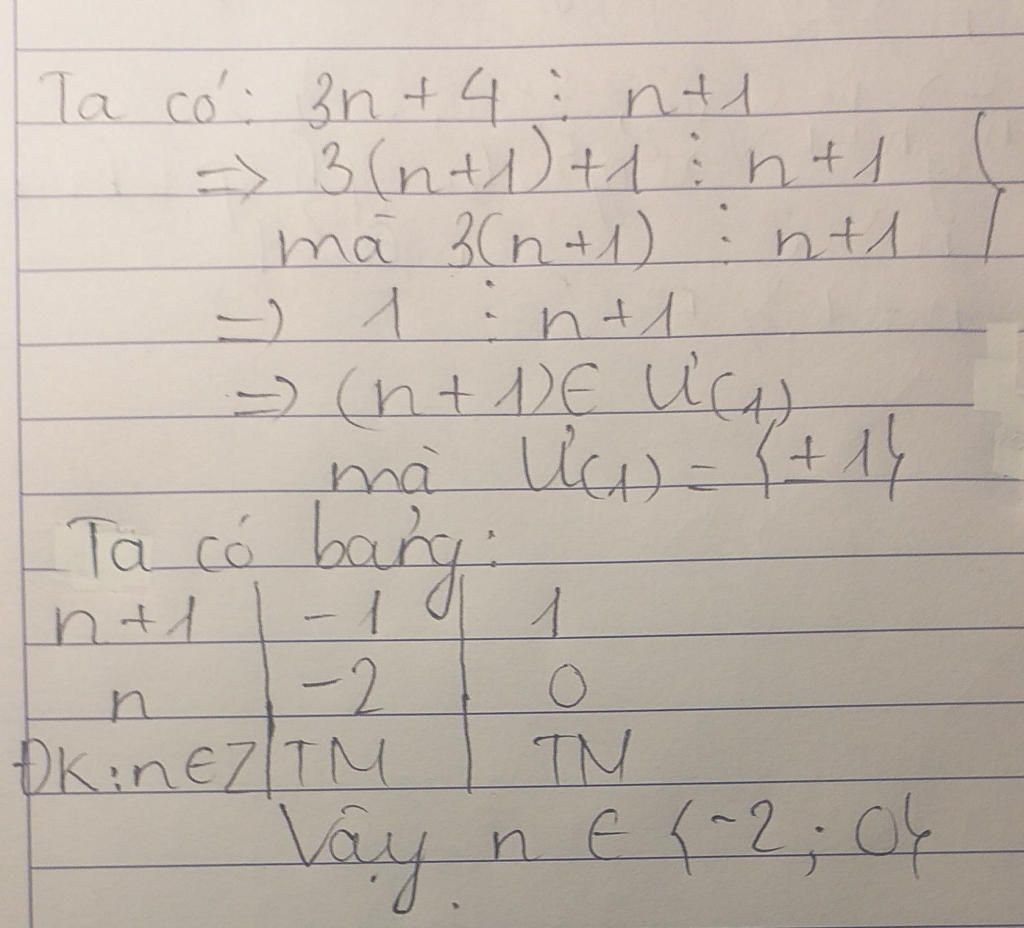 Ta có: 3n + 4 ⋮ n+1
=> 3(n+1)+1 ⋮ n+1 }
mà 3(n+1) ⋮ n+1
=> 1 ⋮ n+1
=> (n+1)∈ Ư(1)
mà Ư(1) = {±1}
Ta có bảng:
n+1 | -1 | 1
n | -2 | 0
ĐK: n∈Z | TM | TM
Vậy n ∈ {-2; 0}.